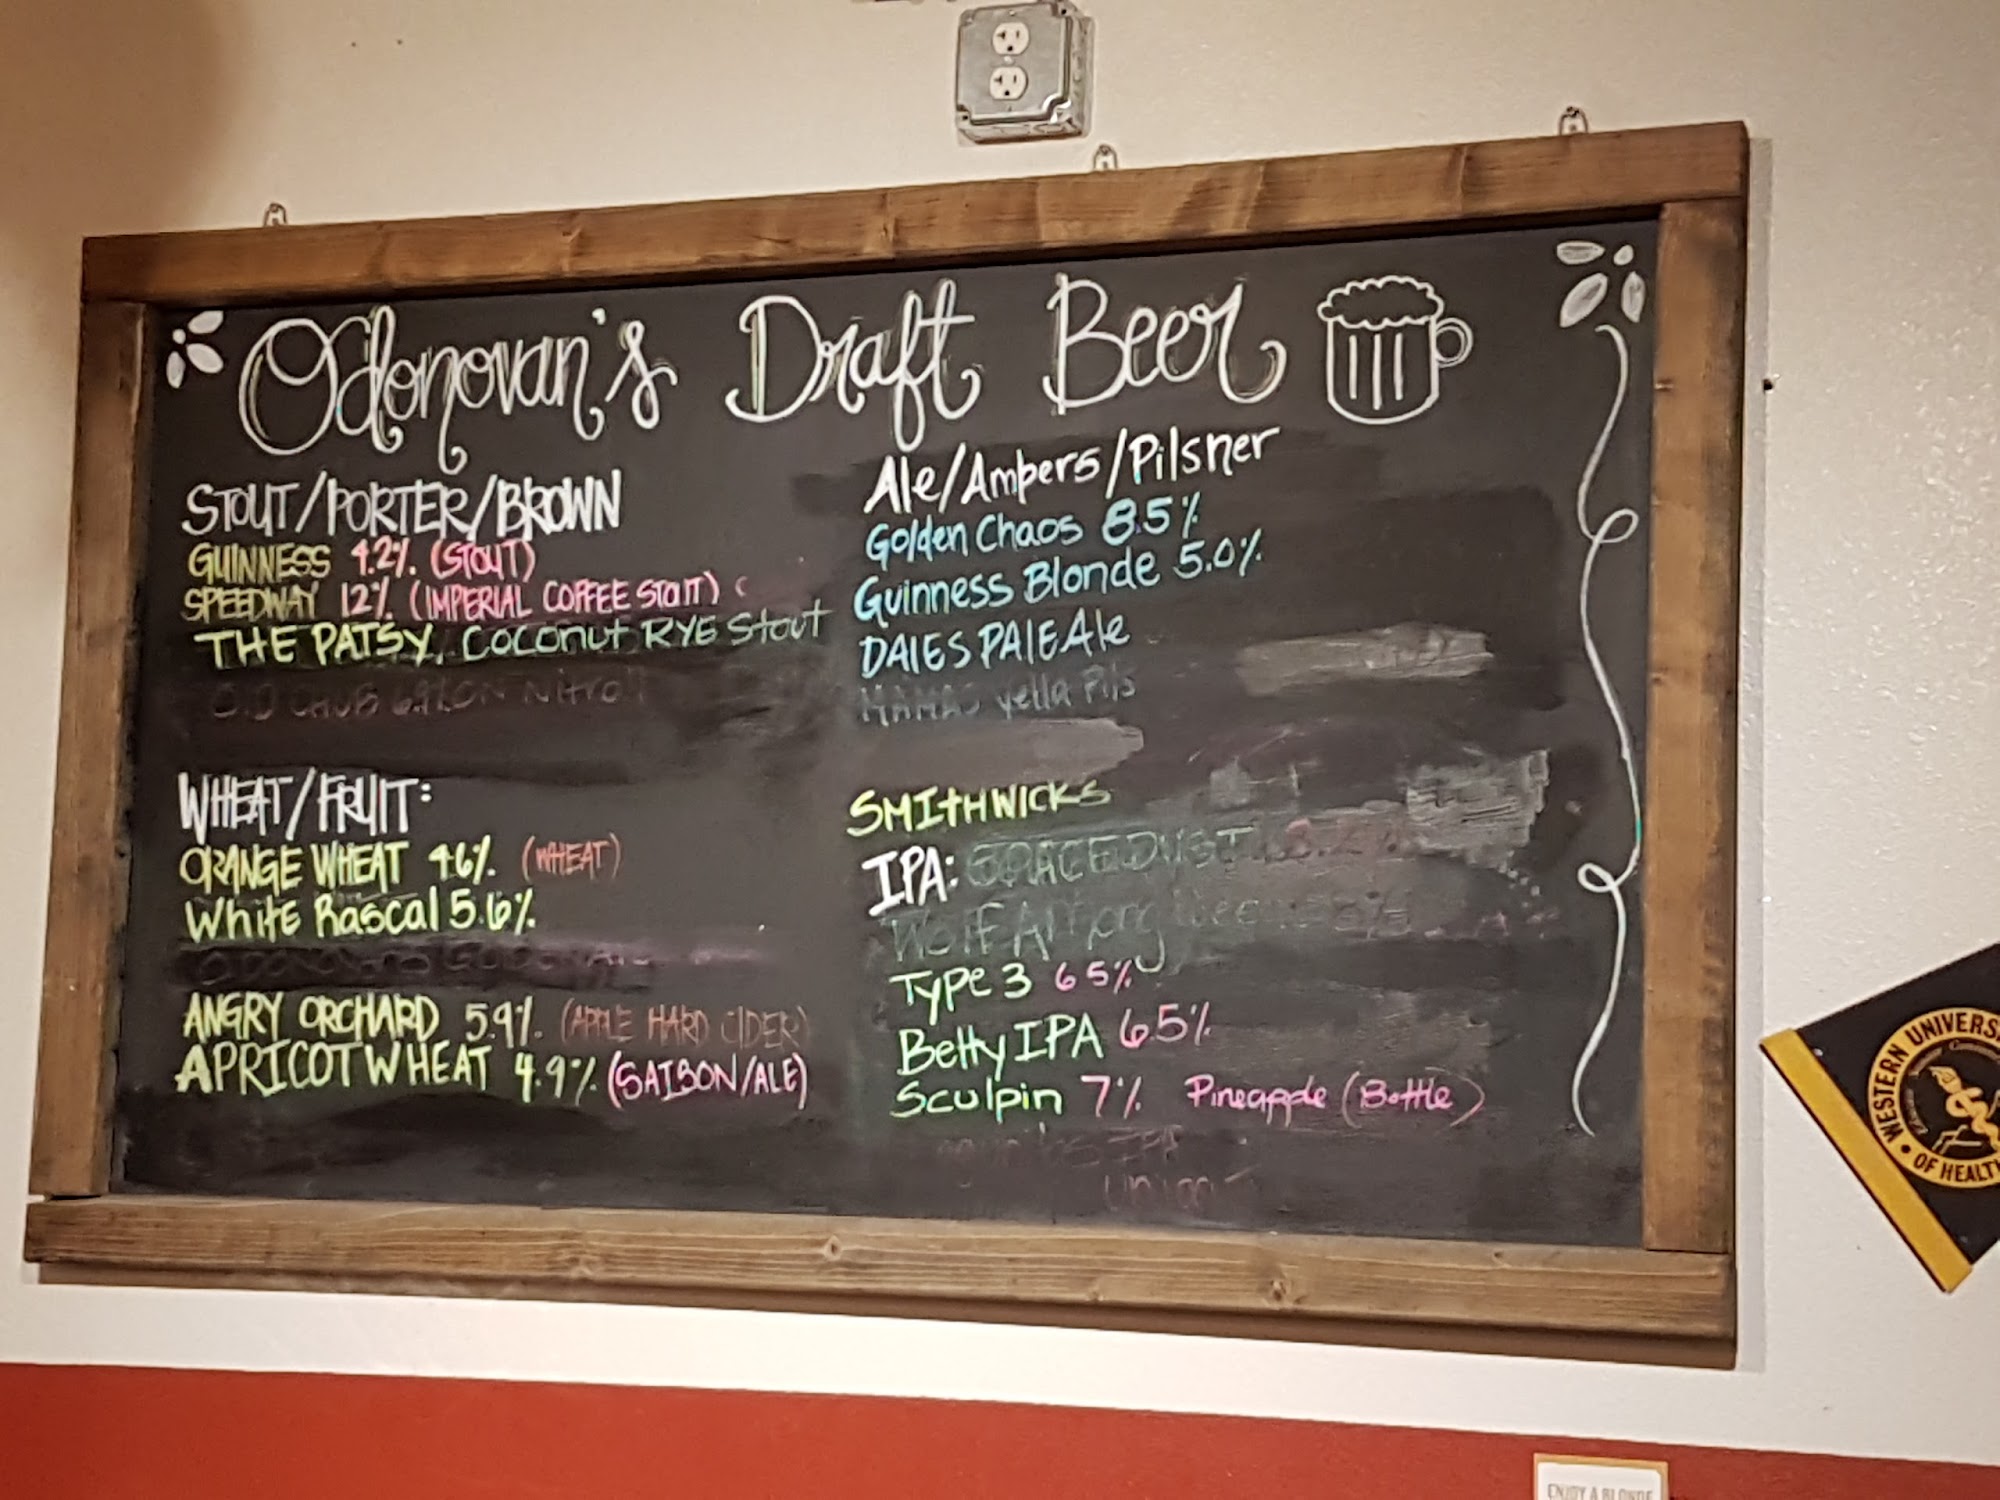 Odonovan's Draft Beer
STOUT/PORTER/BROWN
GUINNESS 4.2% (STOUT)
SPEEDWAY 12% (IMPERIAL COFFEE STOUT)
THE PATSY, Coconut RYE Stout
CHUB 6.9% ON Nitro
WHEAT/FRUIT:
ORANGE WHEAT 4.6% (WHEAT)
White Rascal 5.6%
ANGRY ORCHARD 5.9% (APPLE HARD CIDER)
APRICOT WHEAT 4.9% (SAISON/ALE)
Ale/Ambers/Pilsner
Golden Chaos 8.5%
Guinness Blonde 5.0%
DALES PALE Ale
MAMAS yella Pils
SMITHWICKS
IPA: SPACE DUST
Wolf Among
Type 3 6.5%
Betty IPA 6.5%
Sculpin 7% Pineapple (Bottle)
IPA
WESTERN UNIVERS
OF HEALT
ENJOY A BLONDE